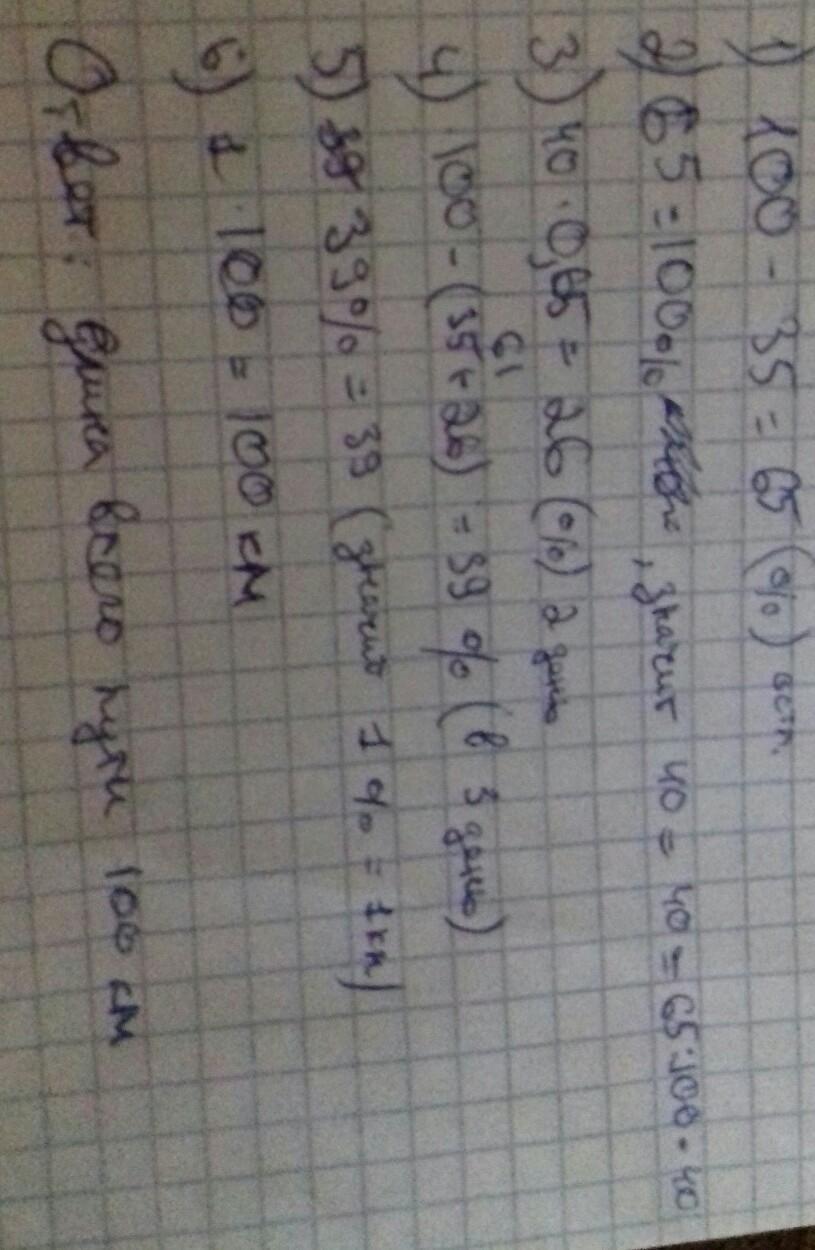 1) 100 - 35 = 65 (%) ост.
2) 65 = 100%, значит 40 = 40 = 65:100·40
3) 40 · 0,65 = 26 (%) 2 день
61
4) 100 - (35 + 26) = 39 % (в 3 день)
5) 39% = 39 (значит 1 % = 1км)
6) 1 · 100 = 100 км
Ответ: длина всего пути 100 км